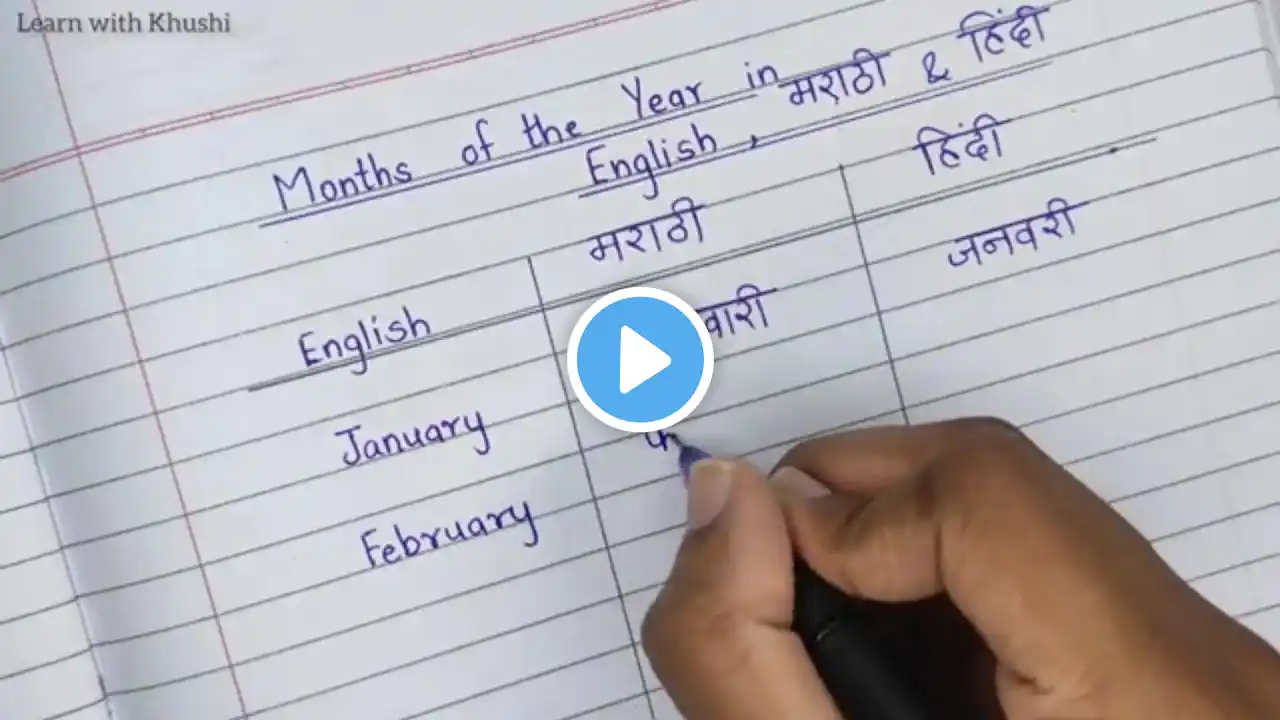 Learn with Khushi
Months of the Year in
English, मराठी & हिंदी
English मराठी हिंदी
January जनवरी
February